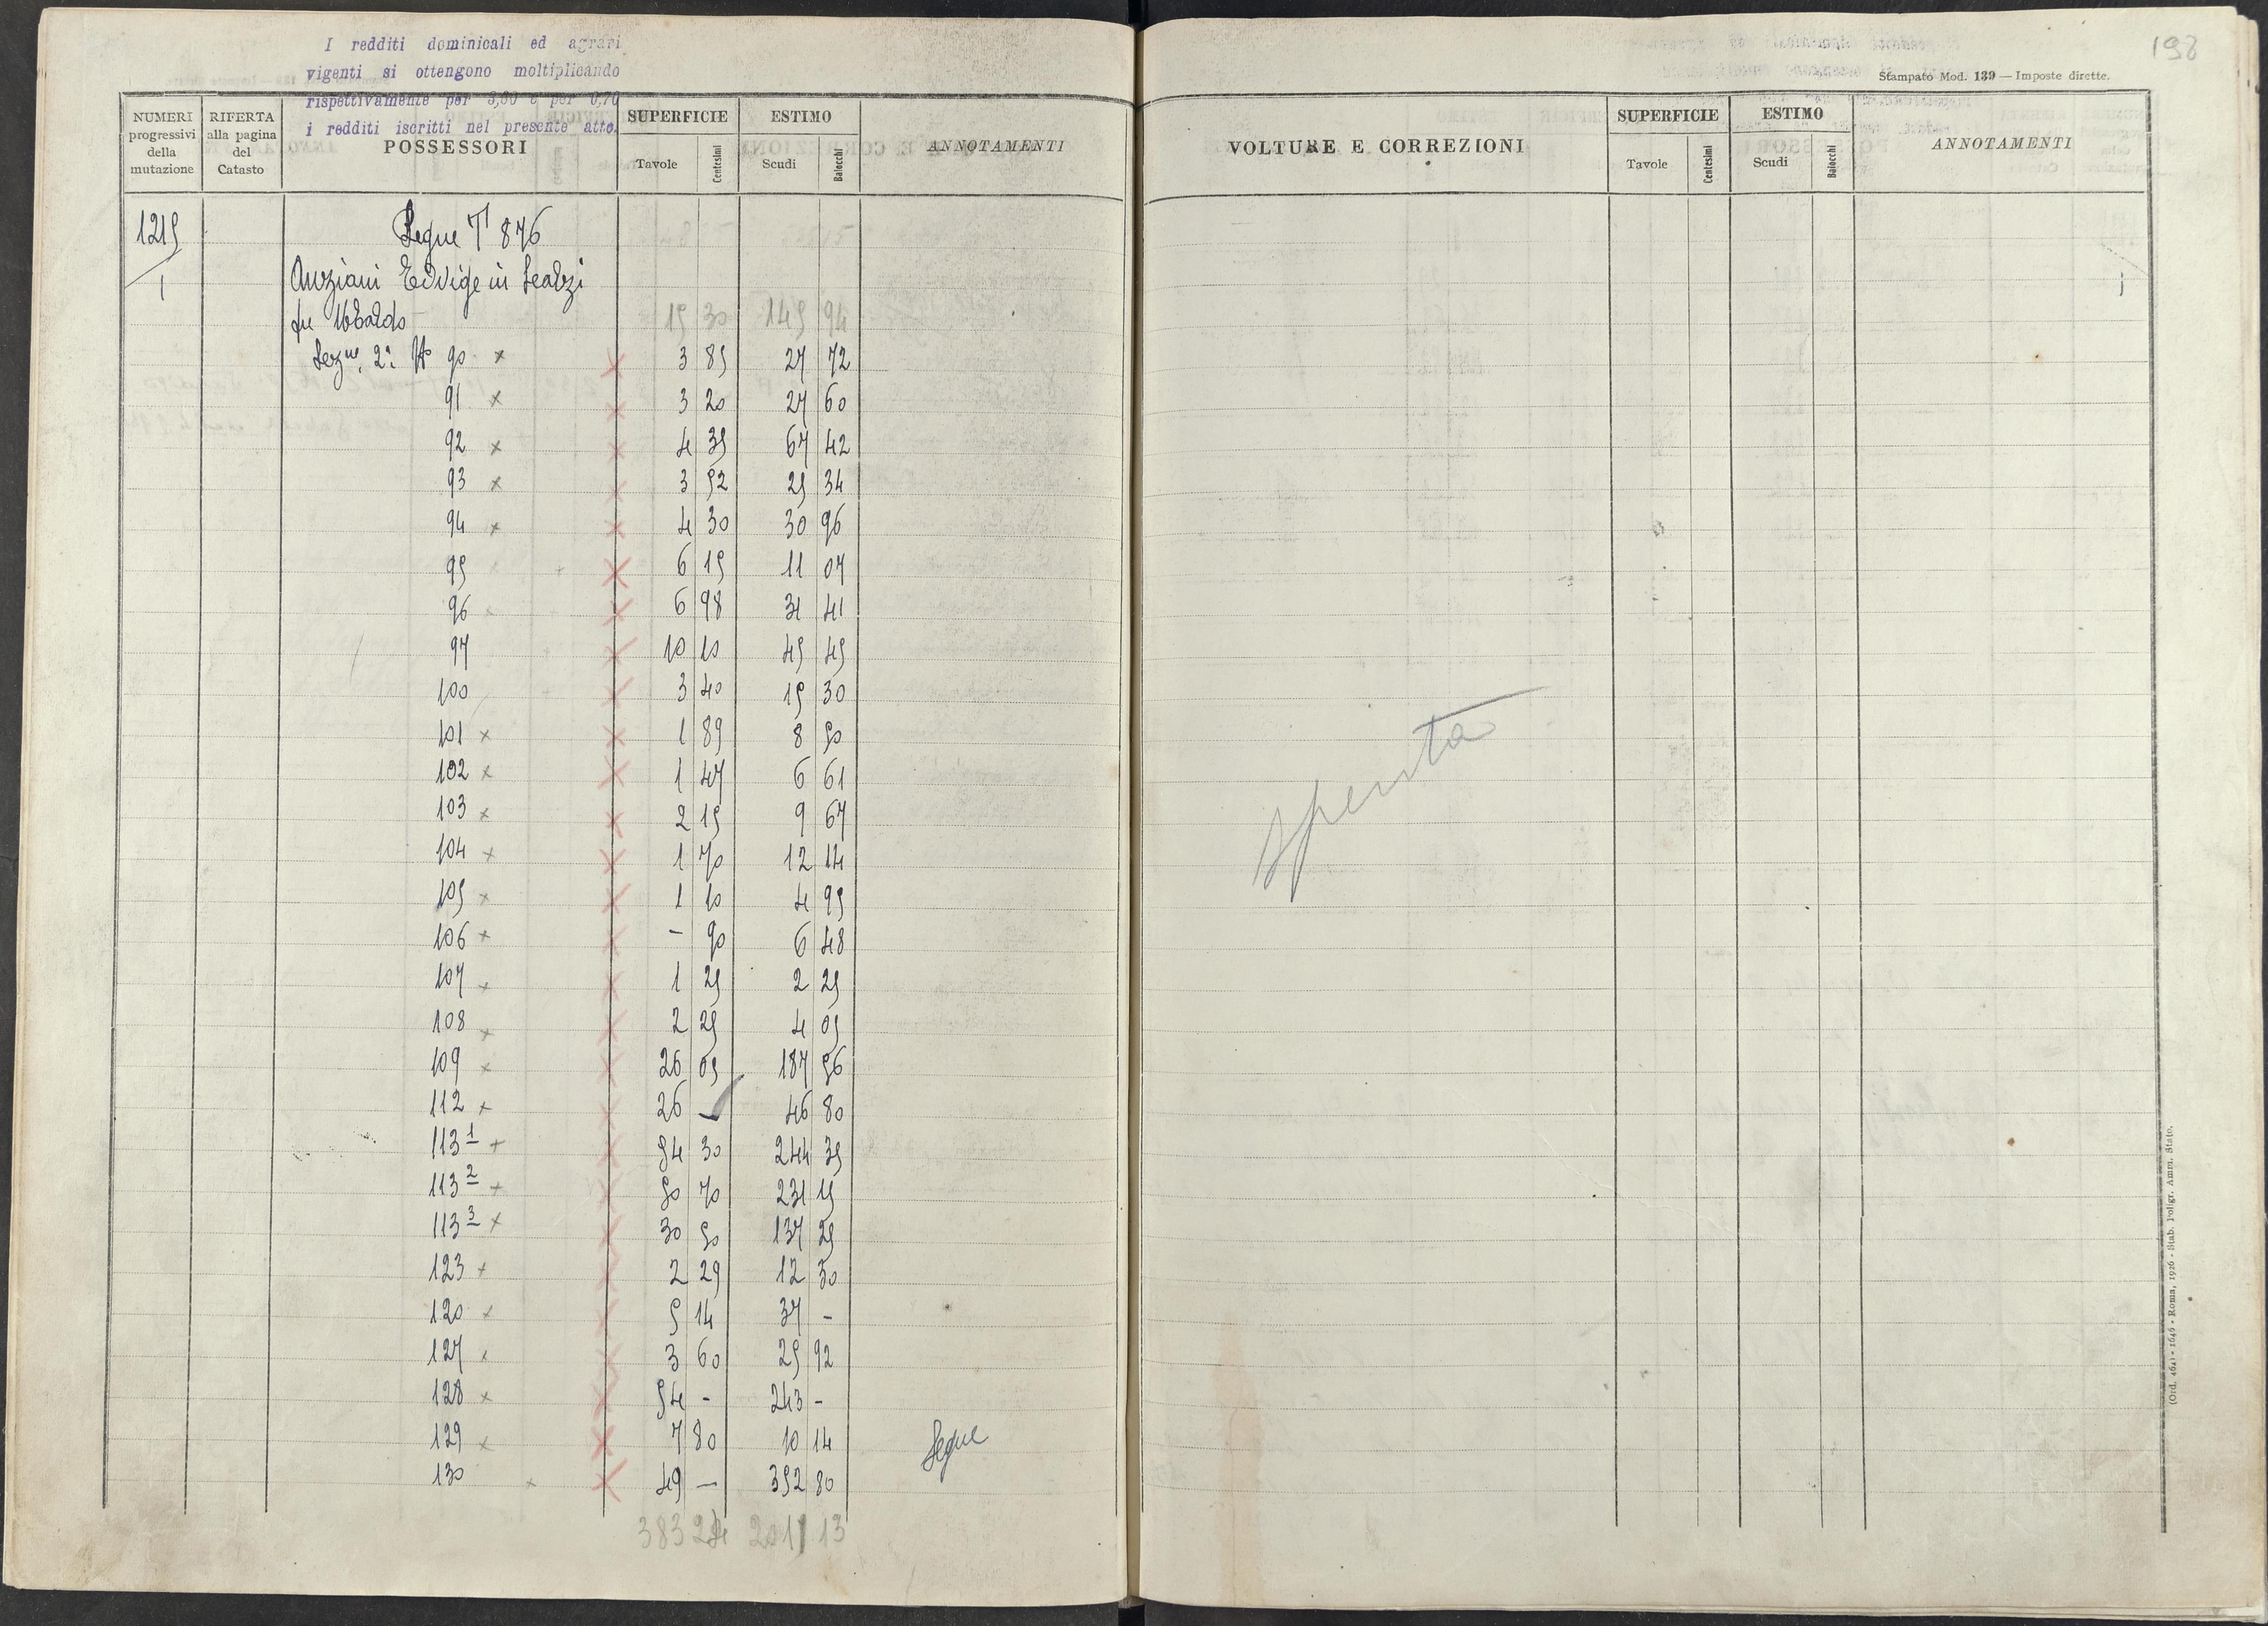 I redditi dominicali ed agrari
vigenti si ottengono moltiplicando
rispettivamente per 3,80 e per 0,70
i redditi iscritti nel presente atto.
NUMERI progressivi della mutazione
RIFERTA alla pagina del Catasto
POSSESSORI
SUPERFICIE Tavole Centesimi
ESTIMO Scudi Baiocchi
ANNOTAMENTI
1215 Segue T 876
1 Anziani Edvige in
fu Ubaldo 15 30 145 94
Sezne 2a No 90 x 3 85 27 72
91 x 3 20 27 60
92 x 4 35 67 42
93 x 3 52 25 34
94 x 4 30 30 96
95 6 15 11 07
96 6 98 31 41
97 10 10 45 45
100 3 40 15 30
101 x 1 89 8 50
102 x 1 47 6 61
103 x 2 15 9 67
104 x 1 70 12 14
105 x 1 10 4 95
106 x - 90 6 48
107 x 1 25 2 25
108 x 2 25 4 05
109 x 26 05 187 56
112 x 26 - 46 80
113 1 x 54 30 244 35
113 2 x 50 70 231 15
113 3 x 30 50 137 25
123 x 2 29 12 50
120 x 5 14 37 -
127 x 3 60 25 92
128 x 54 - 243 -
129 x 7 80 10 14 Segue
130 x 49 - 352 80
383 24 2011 13
198
Stampato Mod. 139 — Imposte dirette.
VOLTURE E CORREZIONI
SUPERFICIE Tavole Centesimi
ESTIMO Scudi Baiocchi
ANNOTAMENTI
spenta
(Ord. 464) - 1646 - Roma, 1926 - Stab. Poligr. Amm. Stato.